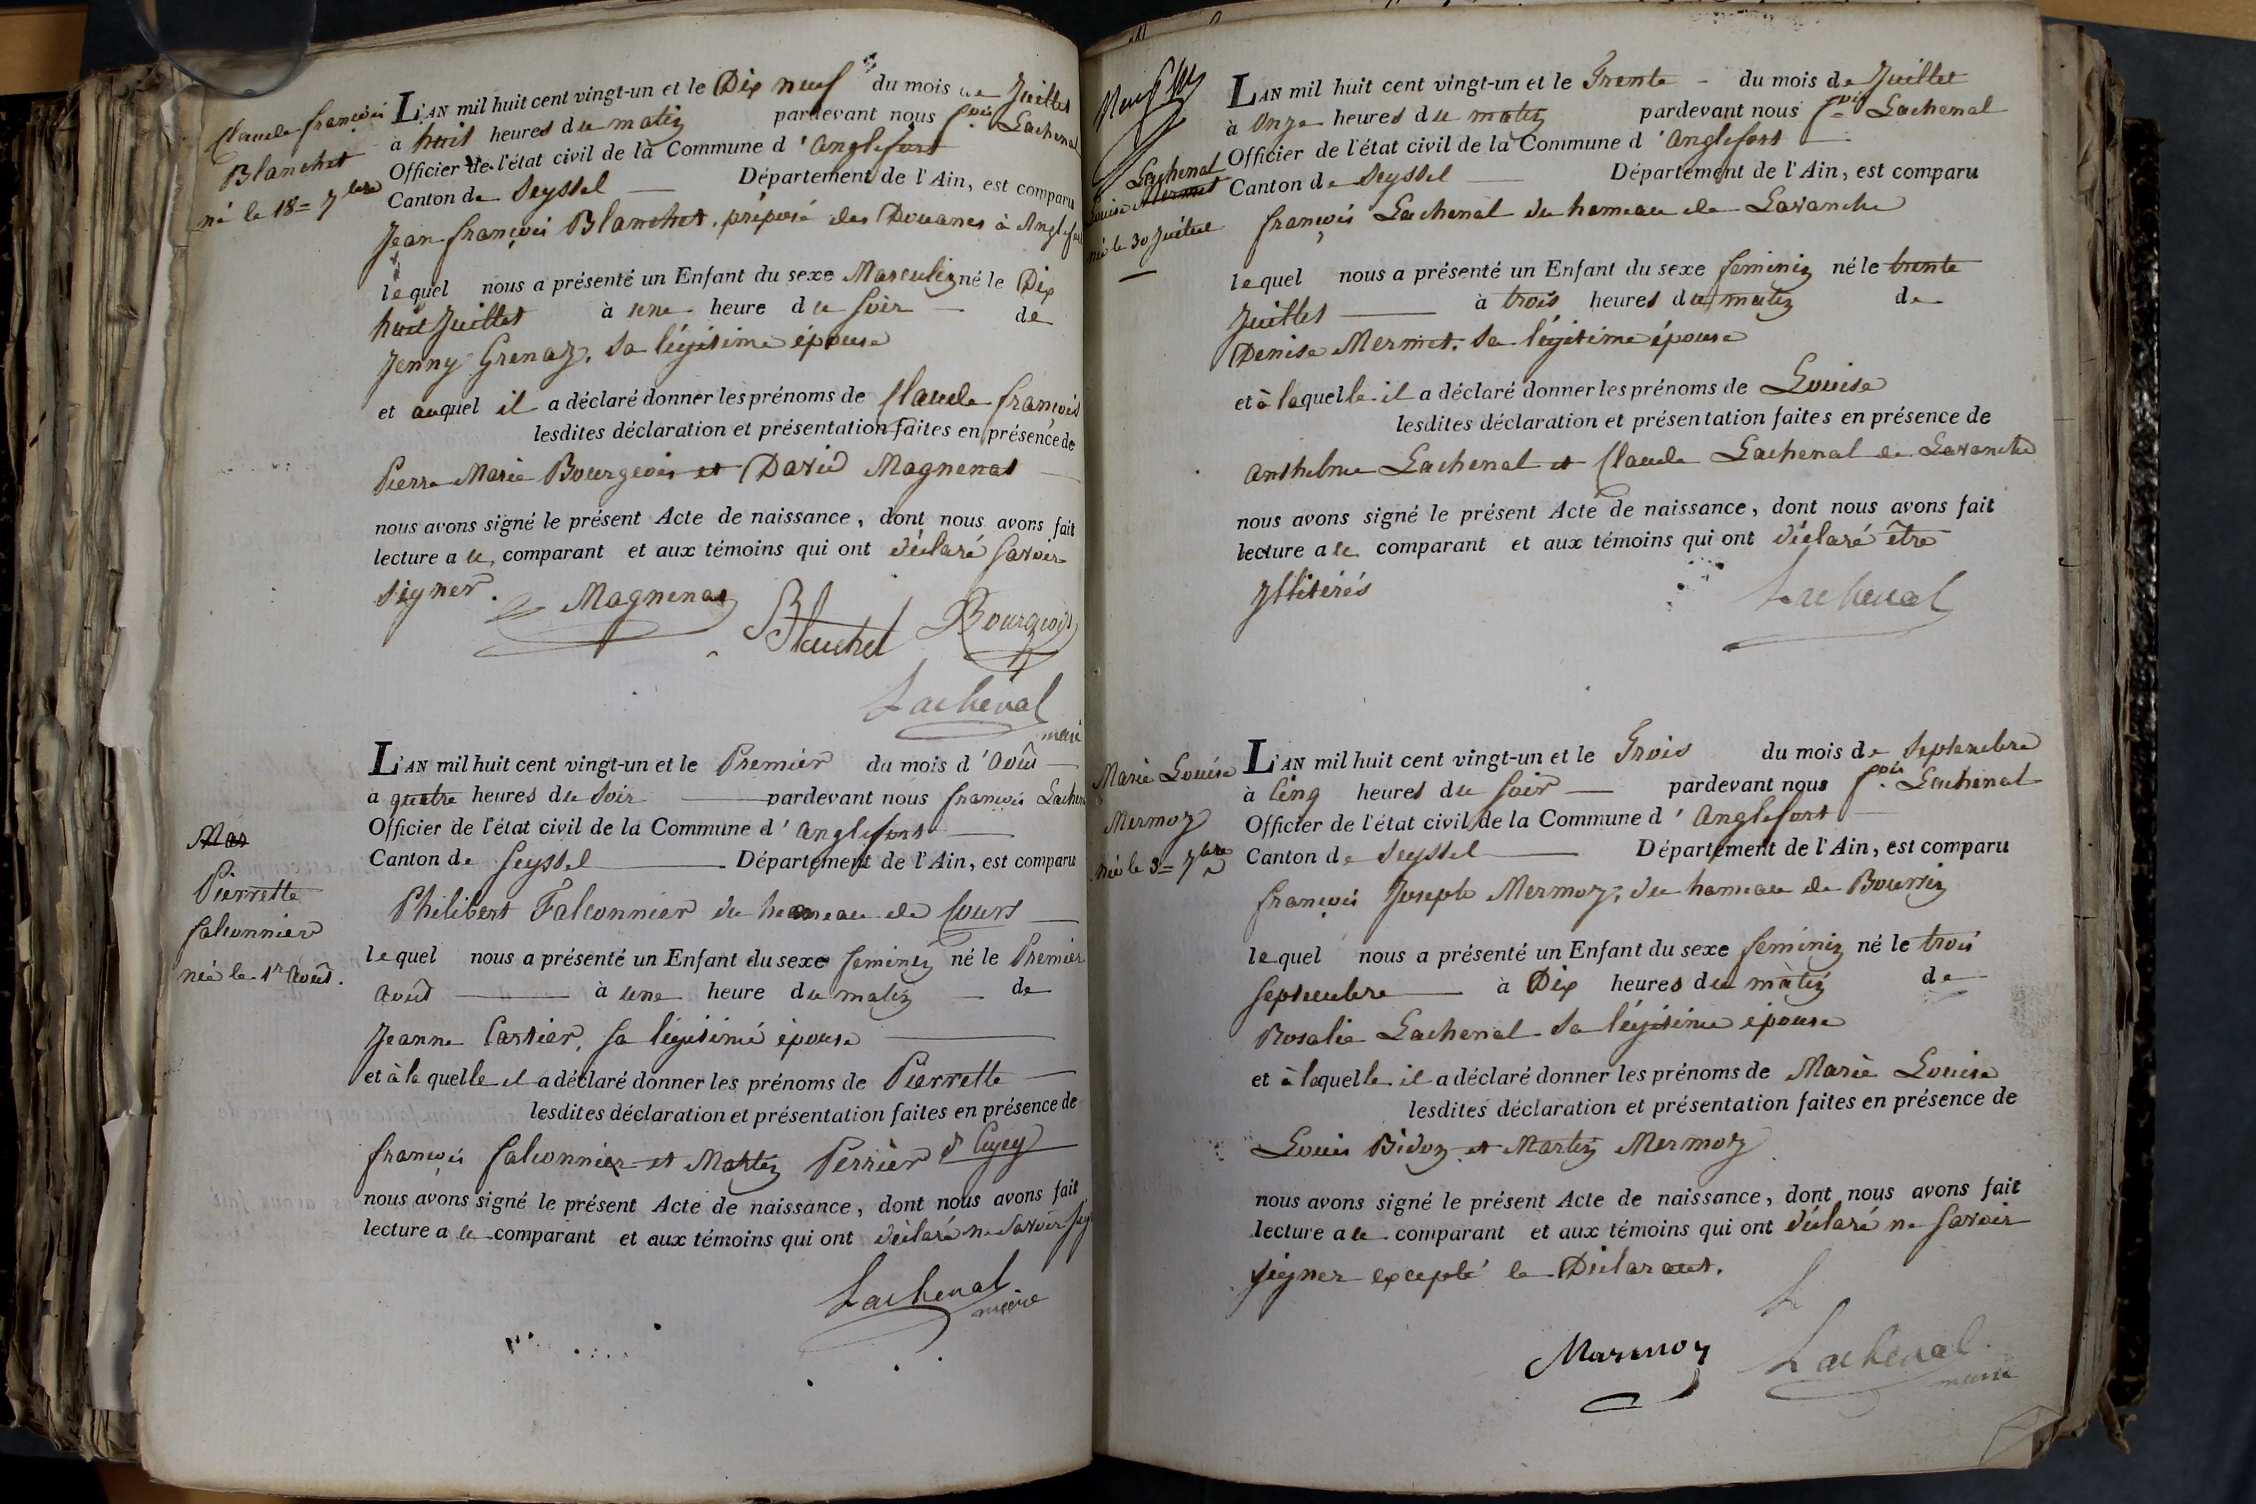 Claude françois
Blanchet
né le 18= 7bre
L'AN mil huit cent vingt-un et le Dix neuf du mois de Juillet
à huit heures du matin pardevant nous fcois Lachenal
Officier de l'état civil de la Commune d'Anglefort
Canton de Seyssel Département de l'Ain, est comparu
Jean françois Blanchet, préposé des Douanes à Anglefort
lequel nous a présenté un Enfant du sexe Masculin né le Dix
huit Juillet à une heure du soir de
Jenny Grenaz, sa légitime épouse
et auquel il a déclaré donner les prénoms de Claude françois
lesdites déclaration et présentation faites en présence de
Pierre Marie Bourgeois et David Magnenat
nous avons signé le présent Acte de naissance, dont nous avons fait
lecture a le comparant et aux témoins qui ont déclaré savoir
signer.
Magnenat
Blanchet Bourgeois
Lachenal
maire
Mar
Pierrette
falconnier
née le 1er Août.
L'AN mil huit cent vingt-un et le Premier du mois d'Août
à quatre heures du soir pardevant nous françois Lachenal
Officier de l'état civil de la Commune d'Anglefort
Canton de Seyssel Département de l'Ain, est comparu
Philibert Falconnier du hameau de Cours
lequel nous a présenté un Enfant du sexe feminin né le Premier
Août à une heure du matin de
Jeanne Carrier, sa légitime épouse
et à la quelle il a déclaré donner les prénoms de Pierrette
lesdites déclaration et présentation faites en présence de
françois falconnier et Martin Perrier
nous avons signé le présent Acte de naissance, dont nous avons fait
lecture a le comparant et aux témoins qui ont déclaré ne savoir sig
Lachenal
maire
Lachenal
Louise Mermet
née le 30 Juillet
L'AN mil huit cent vingt-un et le Trente du mois de Juillet
à Onze heures du matin pardevant nous fcois Lachenal
Officier de l'état civil de la Commune d'Anglefort
Canton de Seyssel Département de l'Ain, est comparu
françois Lachenal du hameau de Lavanche
lequel nous a présenté un Enfant du sexe feminin né le trente
Juillet à trois heures du matin de
Denise Mermet, sa légitime épouse
et à laquelle il a déclaré donner les prénoms de Louise
lesdites déclaration et présentation faites en présence de
Anthelme Lachenal et Claude Lachenal de Lavanche
nous avons signé le présent Acte de naissance, dont nous avons fait
lecture a le comparant et aux témoins qui ont déclaré être
Yllitérés
Lachenal
Marie Louise
Mermoz
née le 3= 7bre
L'AN mil huit cent vingt-un et le Trois du mois de Septembre
à Cinq heures du soir pardevant nous fcois Lachenal
Officier de l'état civil de la Commune d'Anglefort
Canton de Seyssel Département de l'Ain, est comparu
françois Joseph Mermoz, du hameau de Bourrin
lequel nous a présenté un Enfant du sexe feminin né le trois
Septembre à Dix heures du matin de
Rosalie Lachenal sa légitime épouse
et à laquelle il a déclaré donner les prénoms de Marie Louise
lesdites déclaration et présentation faites en présence de
Louis Bidoz et Martin Mermoz
nous avons signé le présent Acte de naissance, dont nous avons fait
lecture a le comparant et aux témoins qui ont déclaré ne savoir
signer excepté le Déclarant.
Marmoz Lachenal
maire